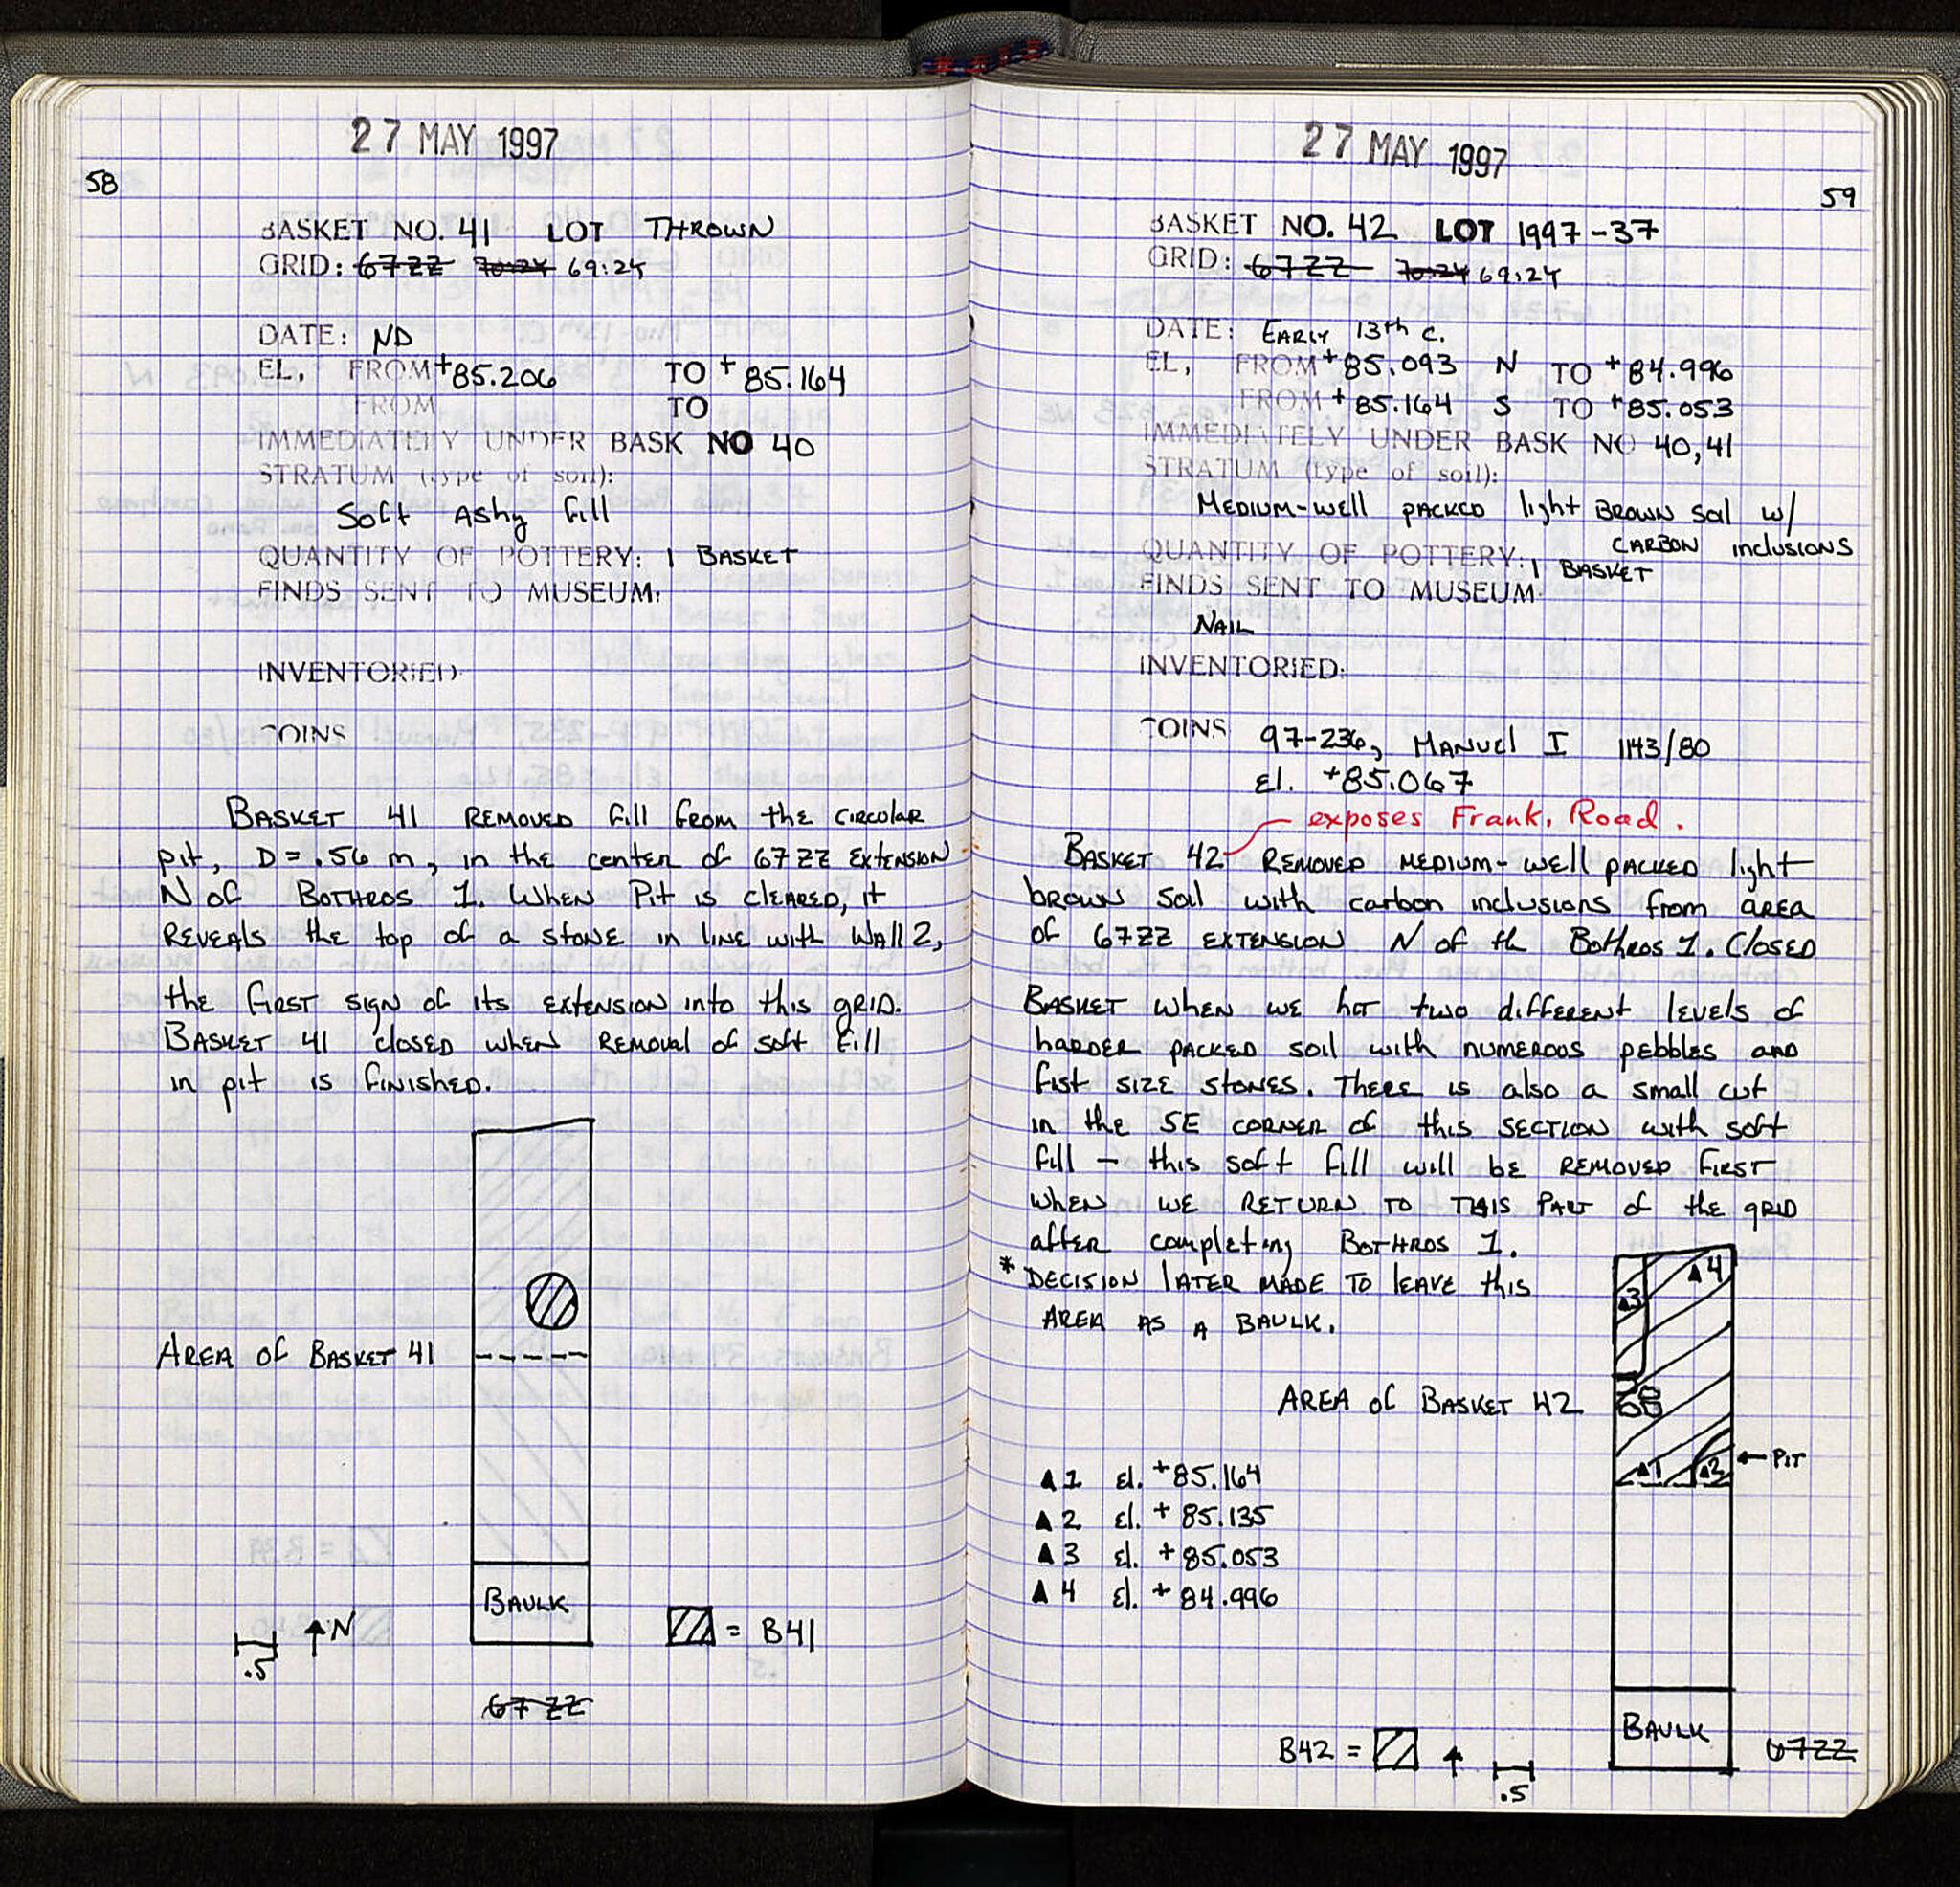 27 MAY 1997
58
BASKET NO. 41 LOT THROWN
GRID: 67ZZ 70:24 69:24
DATE: ND
EL, FROM +85.206 TO +85.164
FROM TO
IMMEDIATELY UNDER BASK NO 40
STRATUM (type of soil):
Soft Ashy fill
QUANTITY OF POTTERY: 1 BASKET
FINDS SENT TO MUSEUM:
INVENTORIED:
COINS
BASKET 41 REMOVED fill from the circular
pit, D = .56 m, in the center of 67ZZ EXTENSION
N of BOTHROS 1. When Pit is CLEARED, it
REVEALS the top of a stone in line with Wall 2,
the first sign of its extension into this grid.
BASKET 41 closed when removal of soft fill
in pit is finished.
AREA of BASKET 41
BAULK
.5
N
= B41
67ZZ
27 MAY 1997
59
BASKET NO. 42 LOT 1997-37
GRID: 67ZZ 70:24 69:24
DATE: EARLY 13th c.
EL, FROM +85.093 N TO +84.996
FROM +85.164 S TO +85.053
IMMEDIATELY UNDER BASK NO 40, 41
STRATUM (type of soil):
MEDIUM-well packed light BROWN soil w/
CARBON inclusions
QUANTITY OF POTTERY: 1 BASKET
FINDS SENT TO MUSEUM:
NAIL
INVENTORIED:
COINS 97-236, MANUEL I 1143/80
El. +85.067
exposes Frank. Road.
BASKET 42 REMOVED MEDIUM-well packed light
brown soil with carbon inclusions from area
of 67ZZ EXTENSION N of th Bothros 1. Closed
BASKET when we hit two different levels of
harder packed soil with numerous pebbles and
fist size stones. There is also a small cut
in the SE corner of this section with soft
fill – this soft fill will be removed first
when we return to this part of the grid
after completing BOTHROS 1.
* DECISION later made to leave this
AREA as a BAULK.
AREA of BASKET 42
4
3
1
2
← PIT
▲ 1 El. +85.164
▲ 2 El. +85.135
▲ 3 El. +85.053
▲ 4 El. +84.996
BAULK
67ZZ
B42 =
.5